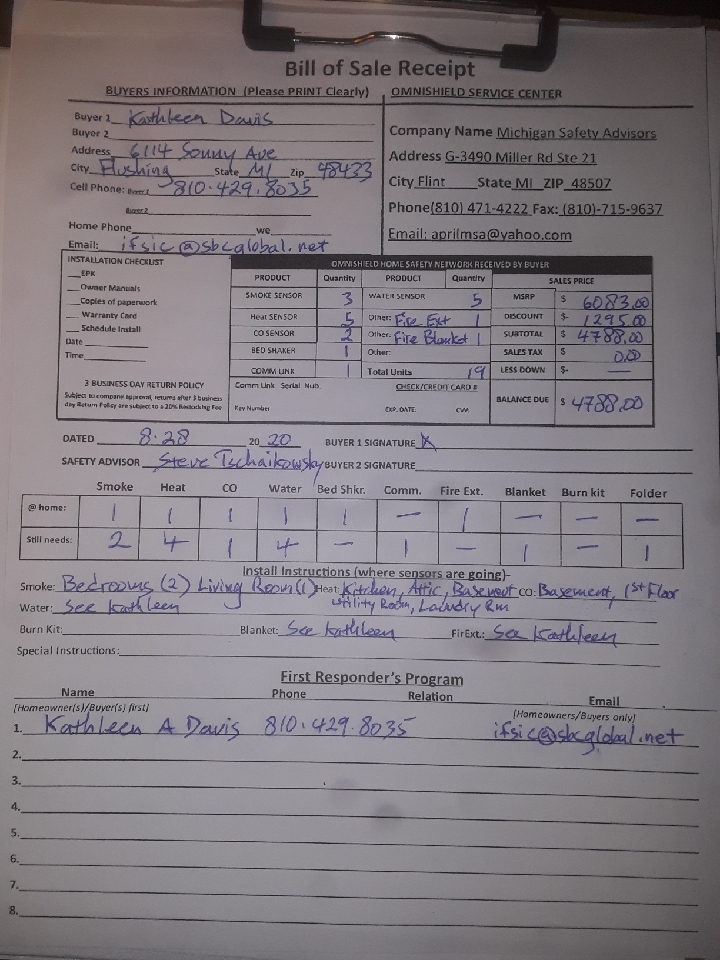 Bill of Sale Receipt
BUYERS INFORMATION (Please PRINT Clearly)
Buyer 1 Kathleen Davis
Buyer 2
Address 6114 Sonny Ave
City Flushing State MI Zip 48433
Cell Phone: Buyer 1 810.429.8035
Buyer 2
Home Phone we
Email: ifsic@sbcglobal.net
OMNISHIELD SERVICE CENTER
Company Name Michigan Safety Advisors
Address G-3490 Miller Rd Ste 21
City Flint State MI ZIP 48507
Phone(810) 471-4222 Fax: (810)-715-9637
Email: aprilmsa@yahoo.com
INSTALLATION CHECKLIST
EPK
Owner Manuals
Copies of paperwork
Warranty Card
Schedule Install
Date
Time
3 BUSINESS DAY RETURN POLICY
Subject to company approval, returns after 3 business
day Return Policy are subject to a 20% Restocking Fee
OMNISHIELD HOME SAFETY NETWORK RECEIVED BY BUYER
PRODUCT Quantity PRODUCT Quantity SALES PRICE
SMOKE SENSOR 3 WATER SENSOR 5 MSRP $ 6083.00
Heat SENSOR 5 Other: Fire Ext 1 DISCOUNT $- 1295.00
CO SENSOR 2 Other: Fire Blanket 1 SUBTOTAL $ 4788.00
BED SHAKER 1 Other: SALES TAX $ 0.00
COMM LINK 1 Total Units 19 LESS DOWN $- —
Comm Link Serial Nub. CHECK/CREDIT CARD # BALANCE DUE $ 4788.00
Key Number EXP. DATE. CVV
DATED 8.28 20 20 BUYER 1 SIGNATURE X
SAFETY ADVISOR Steve Tschaikowsky BUYER 2 SIGNATURE
Smoke Heat CO Water Bed Shkr. Comm. Fire Ext. Blanket Burn kit Folder
@ home: 1 1 1 1 1 — 1 — — —
Still needs: 2 4 1 4 — 1 — 1 — 1
Install Instructions (where sensors are going)-
Smoke: Bedrooms (2) Living Room (1) Heat: Kitchen, Attic, Basement CO: Basement, 1st Floor
Water: See Kathleen Utility Room, Laundry Rm
Burn Kit: Blanket: See Kathleen FirExt.: See Kathleen
Special Instructions:
First Responder's Program
Name Phone Relation Email
[Homeowner(s)/Buyer(s) first] [Homeowners/Buyers only]
1. Kathleen A Davis 810.429.8035 ifsic@sbcglobal.net
2.
3.
4.
5.
6.
7.
8.